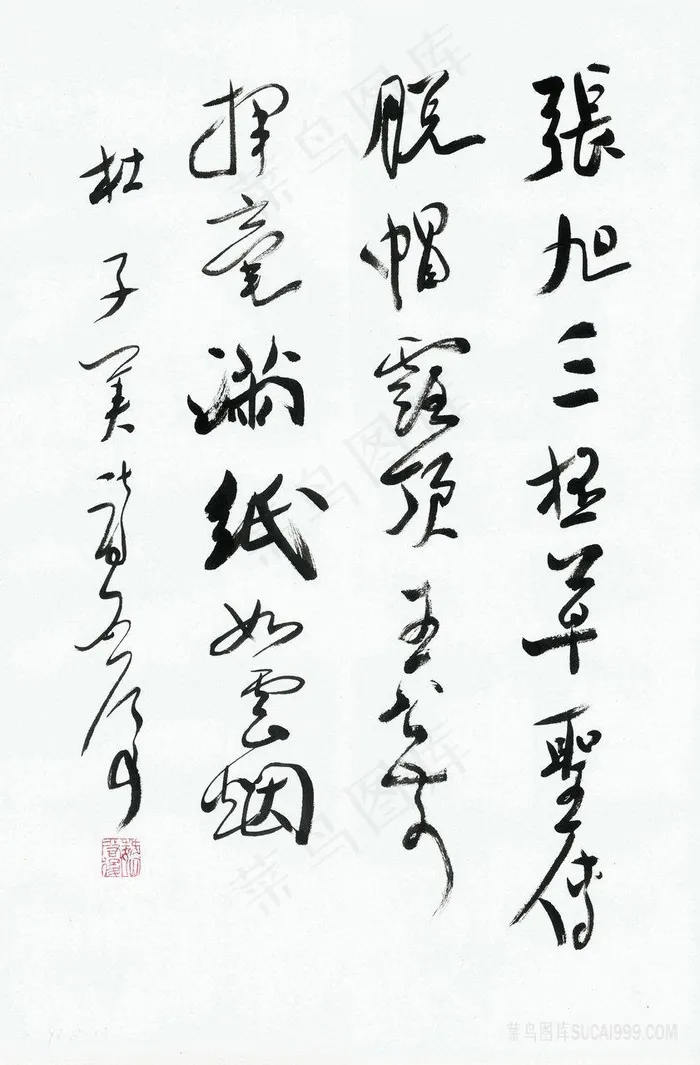 張旭三杯草聖傳
脱帽露頂王公前
揮毫滿紙如雲烟
杜子美詩
菜鸟图库
菜鸟图库SUCAI999.COM